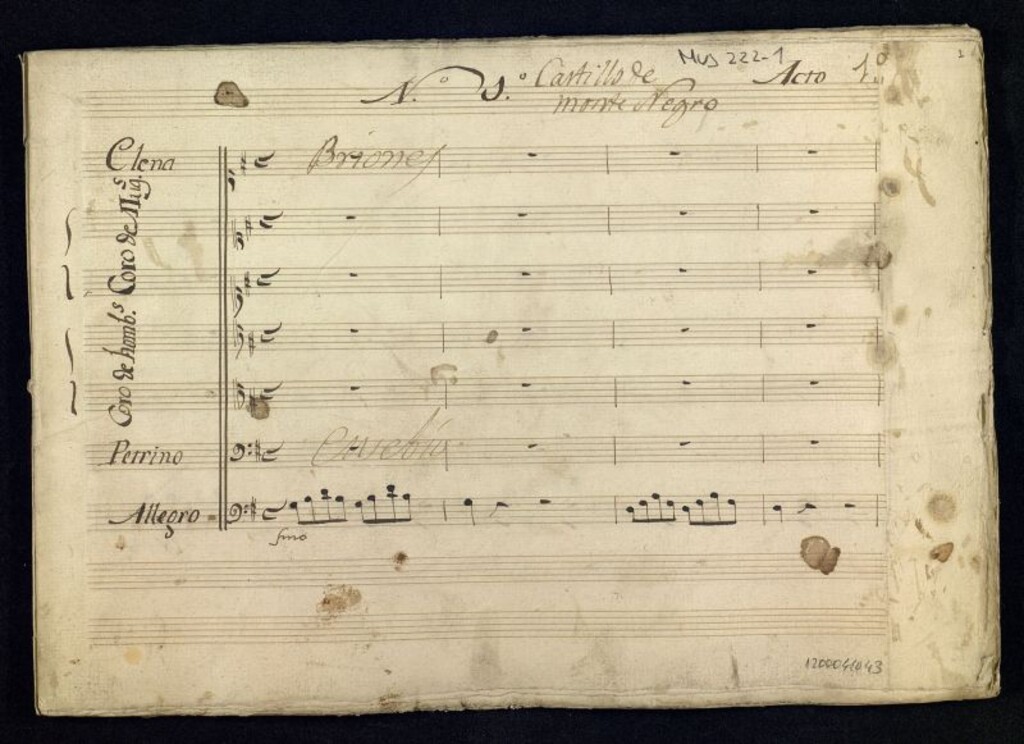 Mus 222-1
N.º 1.º Castillo de Acto 1.º
monte Negro
1
Elena
Briones
Coro de Mug.s
Coro de homb.s
Petrino
Eusebio
Allegro
fmo
1200041043